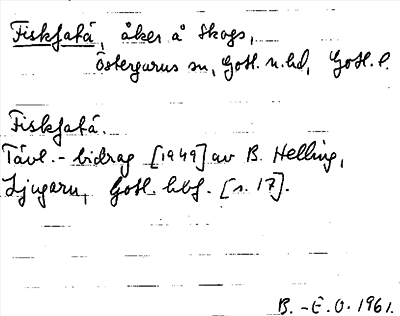 Fiskfatá, åker å Skogs,
Östergarns sn, Gotl. n. hd, Gotl. l.
Fiskfatá.
Tävl.-bidrag [1949] av B. Helling,
Ljugarn, Gotl. hbf. [s. 17].
B.-E.O. 1961.